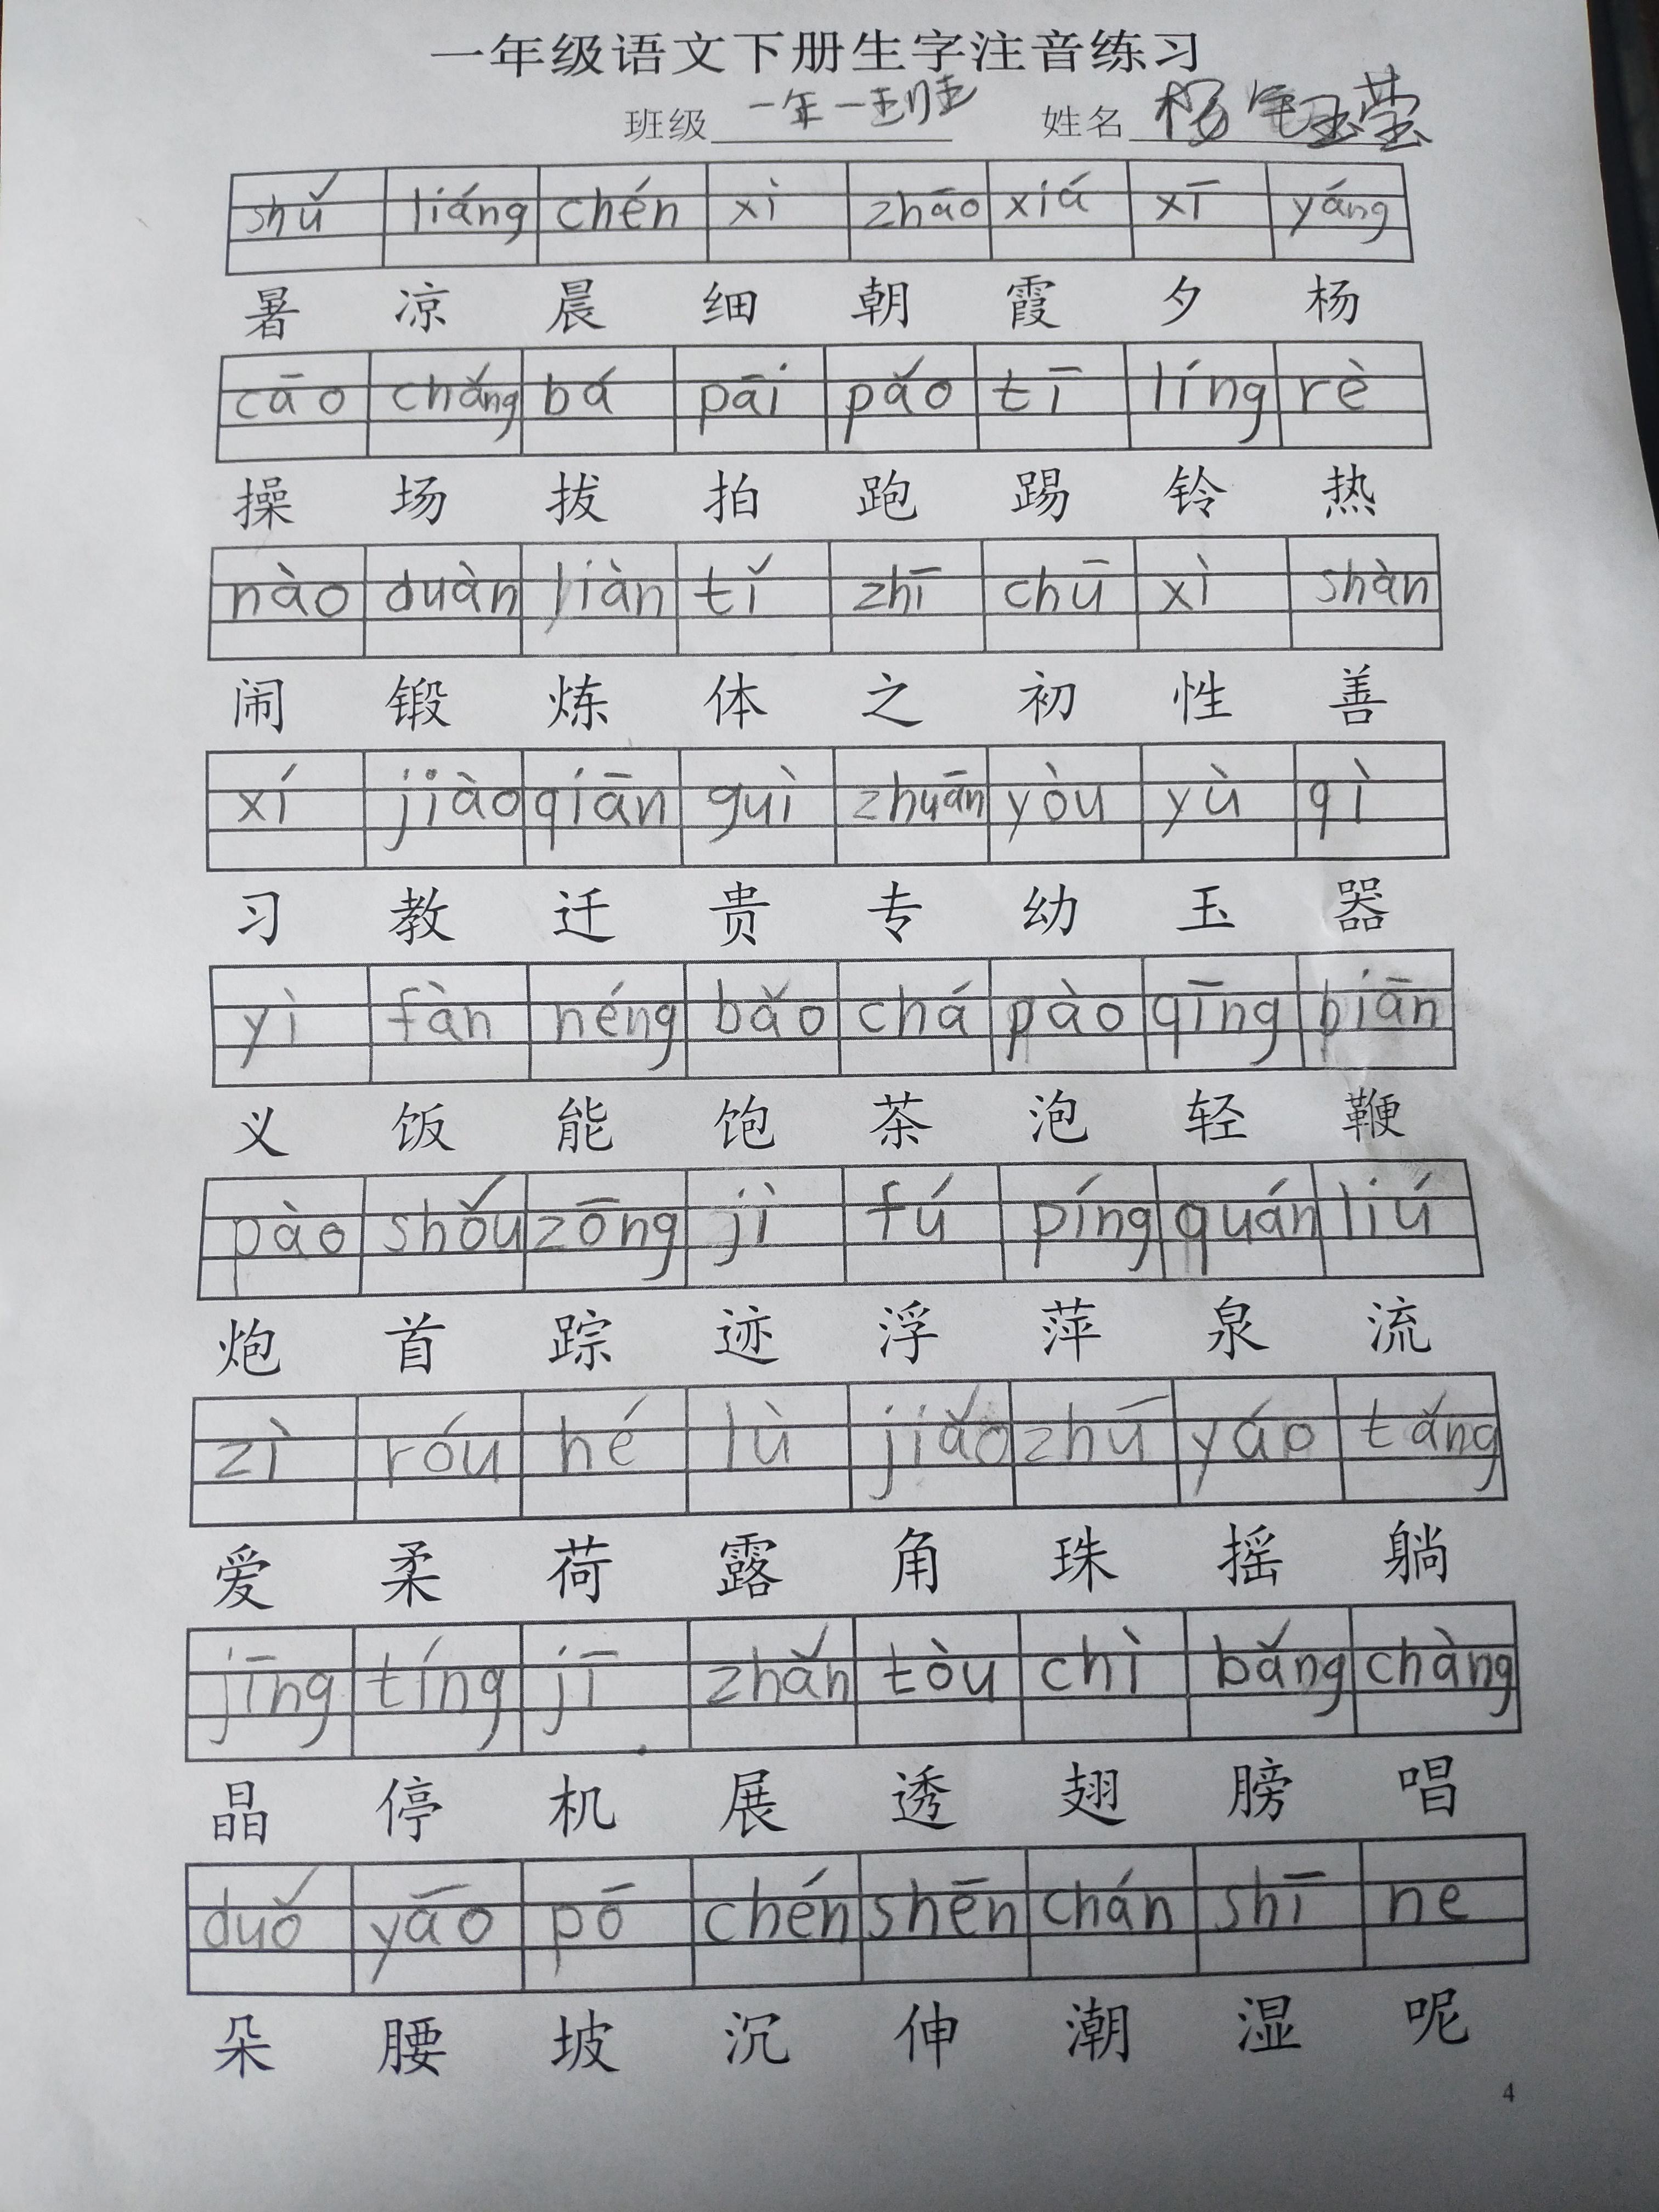 一年级语文下册生字注音练习
班级 一年一班 姓名 杨莹
shǔ liáng chén xì zhāo xiá xī yáng
暑 凉 晨 细 朝 霞 夕 杨
cāo chǎng bá pāi pǎo tī líng rè
操 场 拔 拍 跑 踢 铃 热
nào duàn liàn tǐ zhī chū xì shàn
闹 锻 炼 体 之 初 性 善
xí jiào qiān guì zhuān yòu yù qì
习 教 迁 贵 专 幼 玉 器
yì fàn néng bǎo chá pào qīng biān
义 饭 能 饱 茶 泡 轻 鞭
pào shǒu zōng jì fú píng quán liú
炮 首 踪 迹 浮 萍 泉 流
zì róu hé lù jiǎo zhū yáo tǎng
爱 柔 荷 露 角 珠 摇 躺
jīng tíng jī zhǎn tòu chì bǎng chàng
晶 停 机 展 透 翅 膀 唱
duǒ yāo pō chén shēn chán shī ne
朵 腰 坡 沉 伸 潮 湿 呢
4